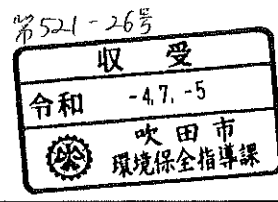 第521-26号
収受
令和 -4.7.-5
吹田市
環境保全指導課